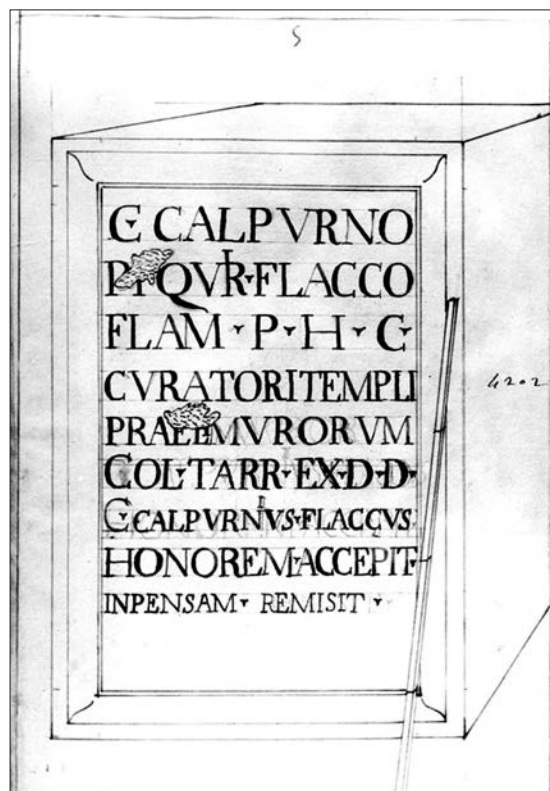 5
C·CALPVRNO
P·F QVIR·FLACCO
FLAM·P·H·C·
CVRATORI TEMPLI
PRAEF MVRORVM
COL·TARR·EX·D·D·
C·CALPVRNIVS·FLACCVS
HONOREM·ACCEPIT·
INPENSAM· REMISIT ·
4202